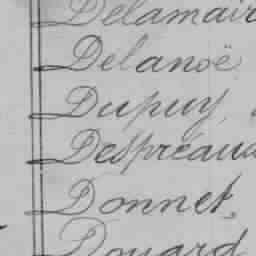 Delamair
Delanoë
Dupuy,
Despréaux
Donnet,
Douard